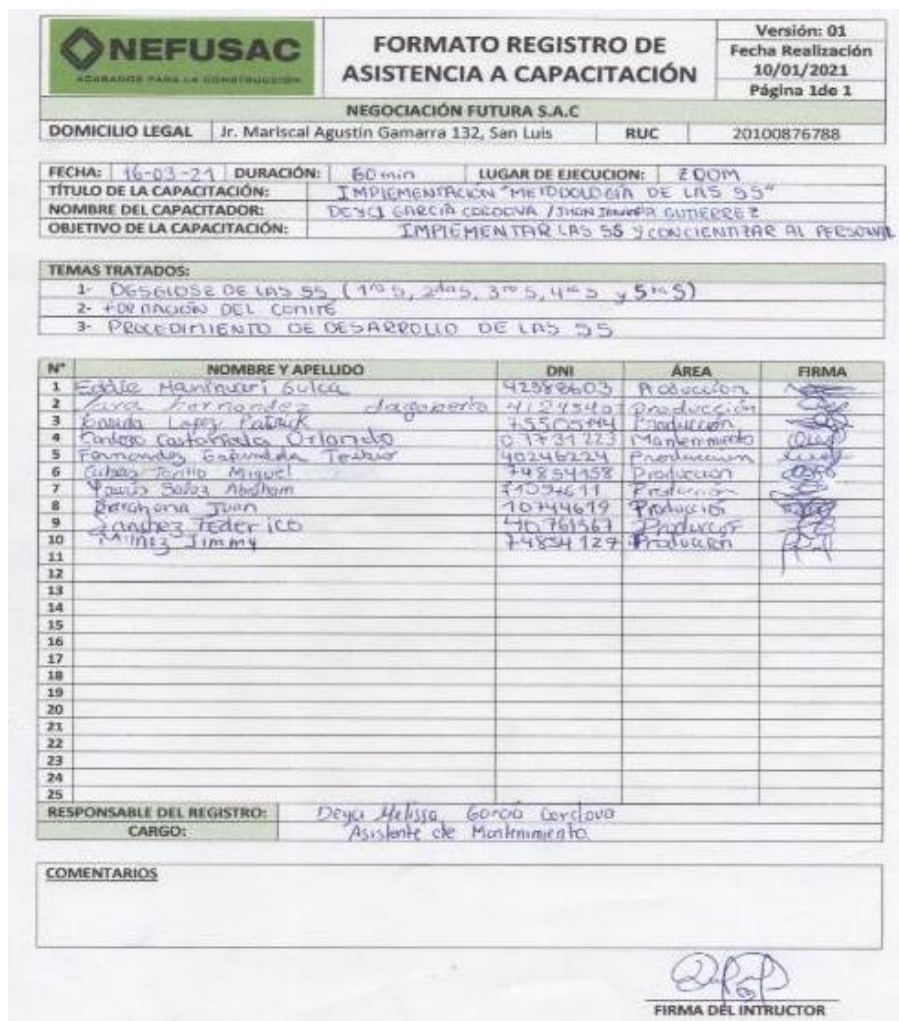 NEFUSAC
ACABADOS PARA LA CONSTRUCCIÓN
FORMATO REGISTRO DE
ASISTENCIA A CAPACITACIÓN
Versión: 01
Fecha Realización
10/01/2021
Página 1de 1
NEGOCIACIÓN FUTURA S.A.C
DOMICILIO LEGAL Jr. Mariscal Agustín Gamarra 132, San Luis RUC 20100876788
FECHA: 16-03-21 DURACIÓN: 60 min LUGAR DE EJECUCION: ZOOM
TÍTULO DE LA CAPACITACIÓN: IMPLEMENTACIÓN "METODOLOGÍA DE LAS 5S"
NOMBRE DEL CAPACITADOR: DEYCI GARCÍA CORDOVA / JHON GUTIERREZ
OBJETIVO DE LA CAPACITACIÓN: IMPLEMENTAR LAS 5S Y CONCIENTIZAR AL PERSONAL
TEMAS TRATADOS:
1- DESGLOSE DE LAS 5S (1ra S, 2da S, 3ra S, 4ta S y 5ta S)
2- FORMACIÓN DEL COMITÉ
3- PROCEDIMIENTO DE DESARROLLO DE LAS 5S
N° NOMBRE Y APELLIDO DNI ÁREA FIRMA
1 Eddie Maninuari Sulca 42388603 Producción
2 Fernandez dagoberto Producción
3 Lopez Patrick Producción
4 Cardozo Orlando Mantenimiento
5 Fernandez Toribio 40246224 Produccion
6 Miguel 74854158 Producción
7 Abraham Produccion
8 Barahona Juan 10744619 Producción
9 Sanchez Federico 40761567 Produccion
10 Jimmy 74854127 Producción
11
12
13
14
15
16
17
18
19
20
21
22
23
24
25
RESPONSABLE DEL REGISTRO: Deyci Melissa García Cordova
CARGO: Asistente de Mantenimiento.
COMENTARIOS
FIRMA DEL INTRUCTOR